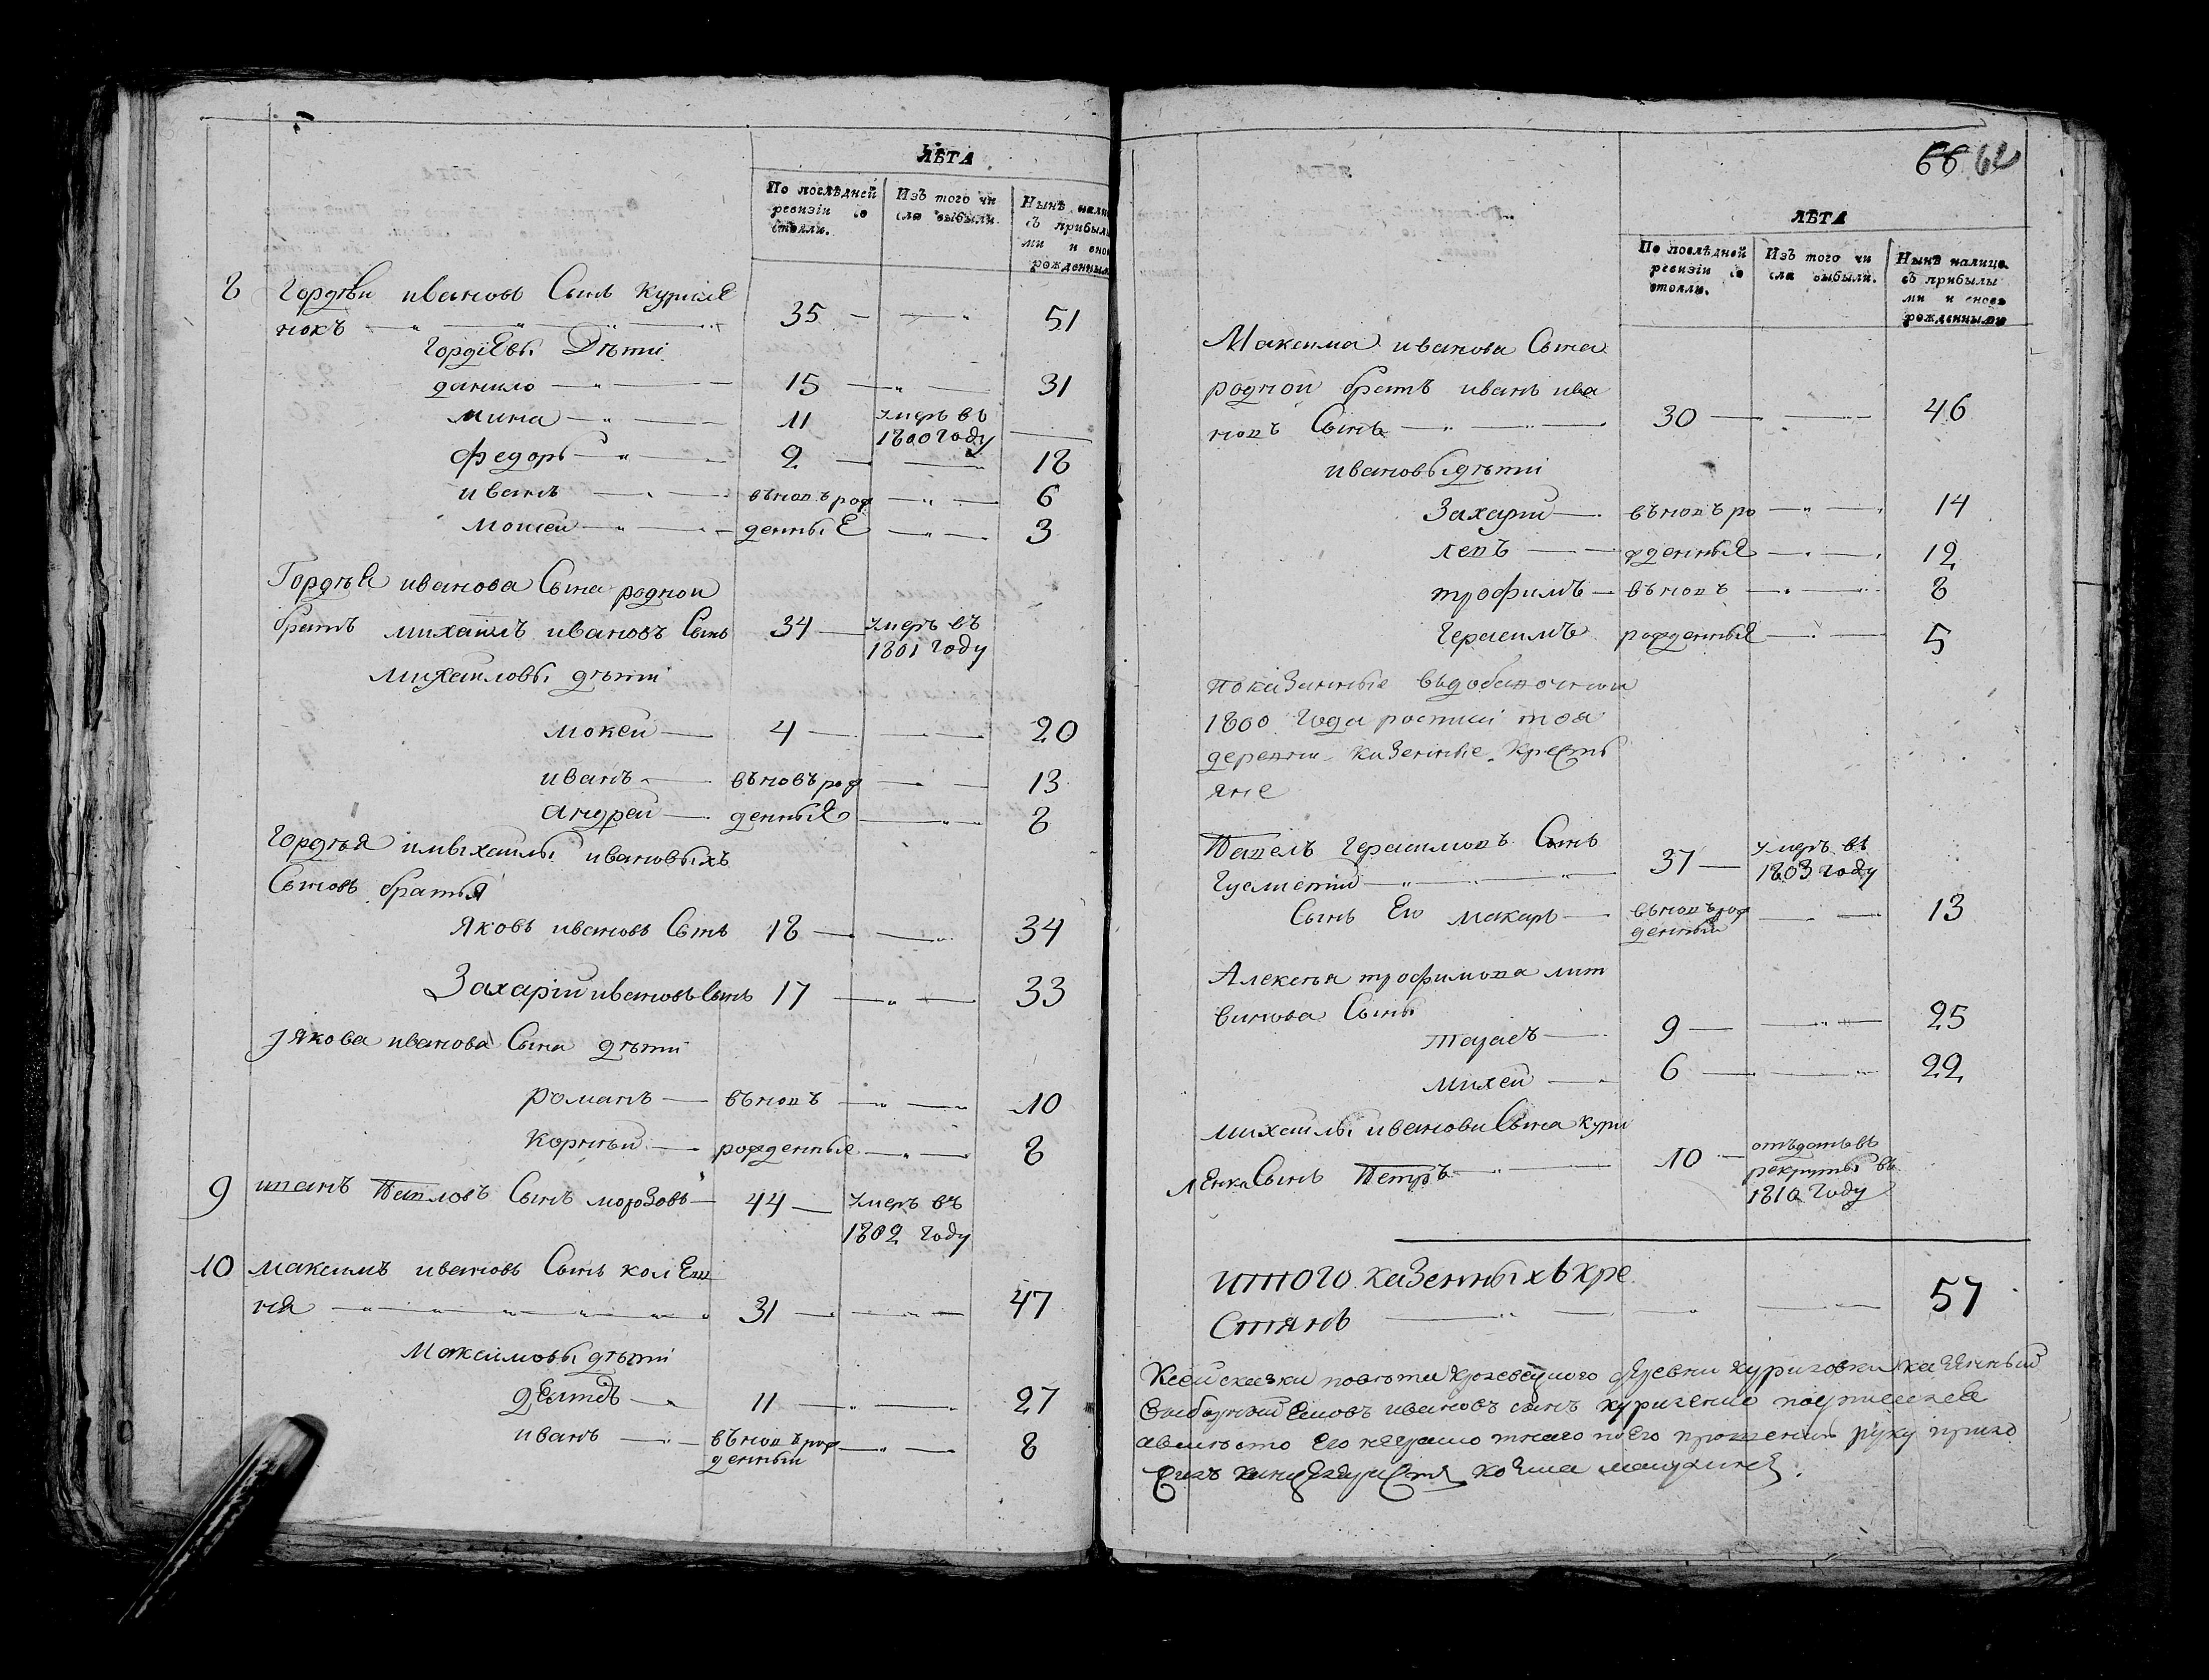 ЛѢТА
По послѣдней ревизіи со стояли.
Изъ того чи сла выбыли.
Нынѣ нали съ прибылы ми и внов рожденными
8 Гордѣй ивановъ Сынъ Куриле
нокъ 35 51
Гордіевы Дѣти
данило 15 31
мина 11 умеръ въ 1800 году
федоръ 2 18
иванъ вновъ рож 6
моисей денные 3
Гордѣя иванова Сына родной
братъ михаилъ ивановъ Сынъ 34 умеръ въ 1801 году
михаиловы дѣти
мокей 4 20
иванъ вновъ рож 13
андрей денныя 8
Гордѣя имихаилы ивановыхъ
Сыновъ братья
Яковъ ивановъ Сынъ 18 34
Захарій ивановъ Сынъ 17 33
якова иванова Сына дѣти
романъ вновъ 10
корнѣй рожденные 8
9 иванъ Павловъ Сынъ морозовъ 44 умеръ въ 1802 году
10 максимъ ивановъ Сынъ
31 47
Максимовы дѣти
11 27
иванъ вновъ рож денный 8
66 62
ЛѢТА
По послѣдней ревизіи со стояли.
Изъ того чи сла выбыли.
Нынѣ налицо съ прибылы ми и вновь рожденными
Максима иванова Сына
родной братъ иванъ ива
новъ Сынъ 30 46
ивановы дѣти
Захарій вновъ ро 14
левъ жденныя 12
трофимъ вновъ 8
Герасимъ рожденныя 5
показанные въдобавочной
1800 года росписи тоя
деревни казенные кресть
яне
Павелъ Герасимовъ Сынъ 37 умеръ въ 1803 году
Сынъ Его макаръ вновъ рож денный 13
Алексѣя трофимова лит
винова Сыны
тарасъ 9 25
михей 6 22
михаилы иванова Сына кури
ленка Сынъ Петръ 10 отъданъ въ рекруты въ 1810 году
итого казенныхъ кре
стянъ 57
Ксей скаски повѣта кролевецкого деревни куриловки казенный
выборный ивановъ сынъ куриленко
авмѣсто Его неграмотнаго поЕго прошению руку прило